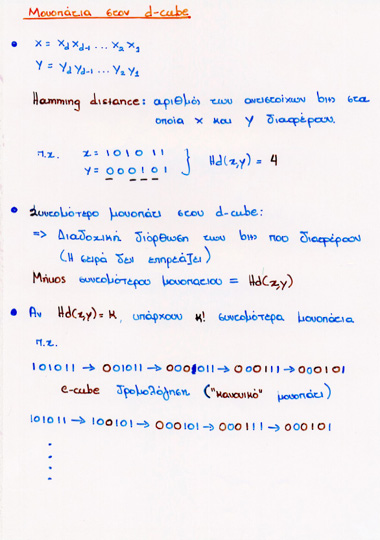 Μονοπάτια στον d-cube
• X = Xd Xd-1 ... X2 X1
Y = Yd Yd-1 ... Y2 Y1
Hamming distance: αριθμός των αντιστοίχων bits στα
οποία x και y διαφέρουν.
π.χ. x = 1 0 1 0 1 1
Y = 0 0 0 1 0 1 } Hd(x,y) = 4
• Συντομότερο μονοπάτι στον d-cube:
=> Διαδοχική διόρθωση των bits που διαφέρουν
(Η σειρά δεν επηρεάζει)
Μήκος συντομότερου μονοπατιού = Hd(x,y)
• Αν Hd(x,y) = κ, υπάρχουν κ! συντομότερα μονοπάτια
π.χ.
101011 → 001011 → 0001011 → 000111 → 000101
e-cube δρομολόγηση ("κανονικό" μονοπάτι)
101011 → 100101 → 000101 → 000111 → 000101